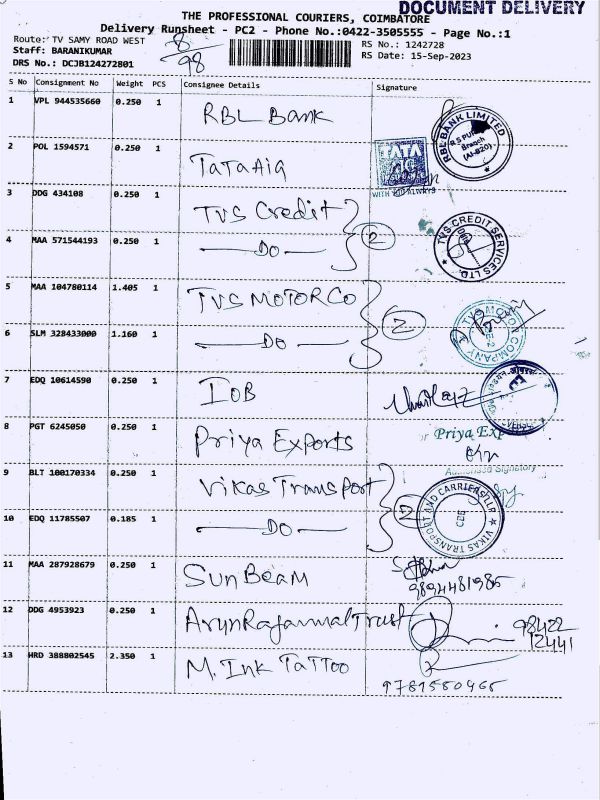 DOCUMENT DELIVERY
THE PROFESSIONAL COURIERS, COIMBATORE
Delivery Runsheet - PC2 - Phone No.:0422-3505555 - Page No.:1
Route: TV SAMY ROAD WEST 8/98 RS No.: 1242728
Staff: BARANIKUMAR RS Date: 15-Sep-2023
DRS No.: DCJB124272801
S No Consignment No Weight PCS Consignee Details Signature
1 VPL 944535660 0.250 1 RBL Bank
RBL BANK LIMITED
Branch
(AI-820)
2 POL 1594571 0.250 1 TaTa AiG
TATA
AIG
WITH YOU ALWAYS
3 DDG 434108 0.250 1 TVS Credit
4 MAA 571544193 0.250 1 DO 2
TVS CREDIT SERVICES LTD.
5 MAA 104780114 1.405 1 TVS MOTOR CO
6 SLM 328433000 1.160 1 DO 2
TVS MOTOR COMPANY
7 EDQ 10614590 0.250 1 IOB
8 PGT 6245050 0.250 1 Priya Exports
Priya
Authorised Signatory
9 BLT 100170334 0.250 1 Vikas Transport
10 EDQ 11785507 0.185 1 DO 2
VIKAS TRANSPORT AND CARRIERS
CBE
11 MAA 287928679 0.250 1 Sun Beam
9894481985
12 DDG 4953923 0.250 1 Trust 98422
12441
13 HRD 388802545 2.350 1 M. Ink TaTToo